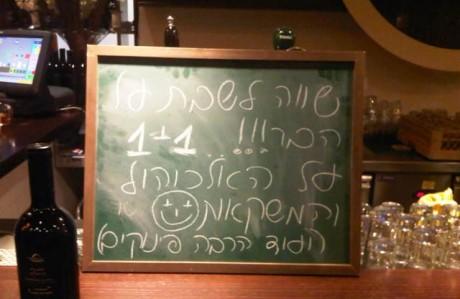 שווה לשבת על
הבר!!! 1+1
על האלכוהול
והמשקאות
(ועוד הרבה פינוקים)